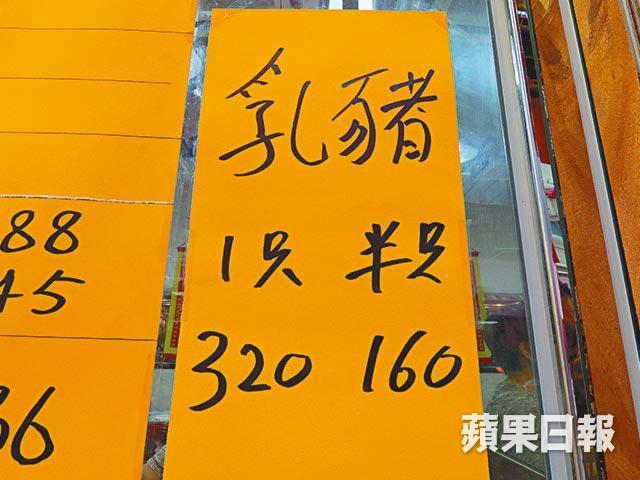 乳豬
1只 半只
320 160
88
45
36
蘋果日報